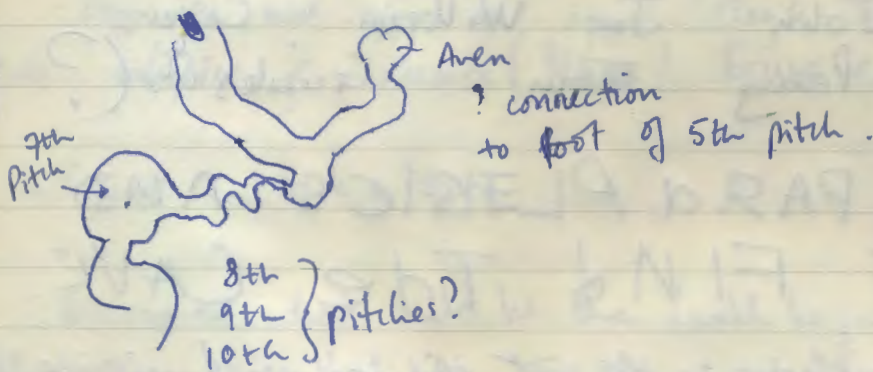 Aven
? connection
to foot of 5th pitch.
7th
Pitch
8th
9th } pitches?
10th